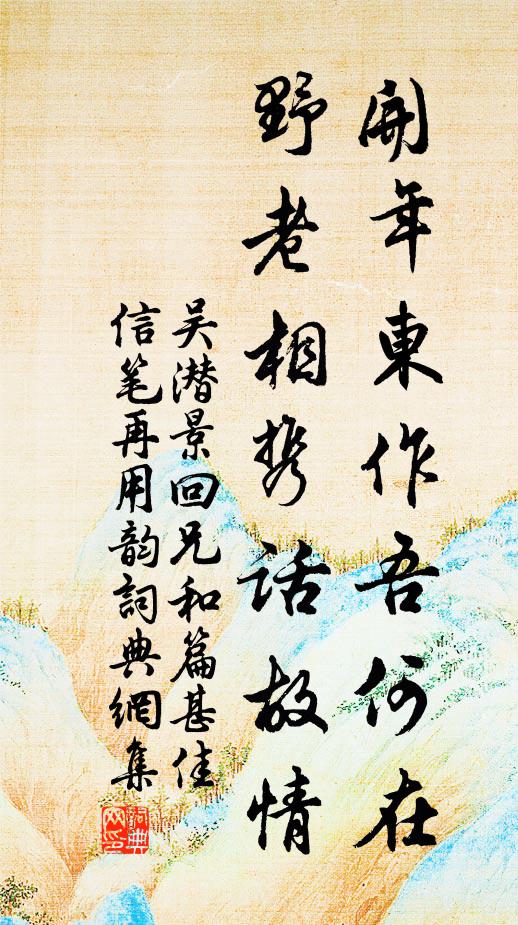 開年東作吾何在
野老相携話故情
吴潜景回兄和篇甚佳
信笔再用韵詞典網集